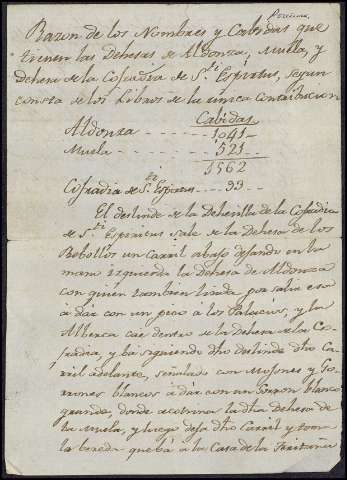 Razon de los Nombres y Cabidas que
tienen las Dehesas de Aldonza, Muela, y
Dehesa de la Cofradia de S.ti Espiritus, segun
consta de los Libros de la unica contribucion
Cabidas
Aldonza - - - - - 1041-
Muela - - - - - 521-
1562
Cofradia de S.ti Espiritus - - 99-
El deslinde de la Dehesilla de la Cofradia
de S.ti Espiritus sale de la Dehesa de los
Bobollos un Carril abajo dejando en la
mano izquierda la Dehesa de Aldonza
con quien tambien linda, por salva esa
à dár con un poco à los Palacios, y la
Alberca cae dentro de la Dehesa de la Co-
fradia, y bá siguiendo dho deslinde dho Ca-
rril adelante, señalado con Mojones y To-
rrones blancos à dár con un Torron blanco
grande, donde acotamos la dha Dehesa de
la Muela, y luego deja dho Carril y toma
la bereda que bá à la Casa de la